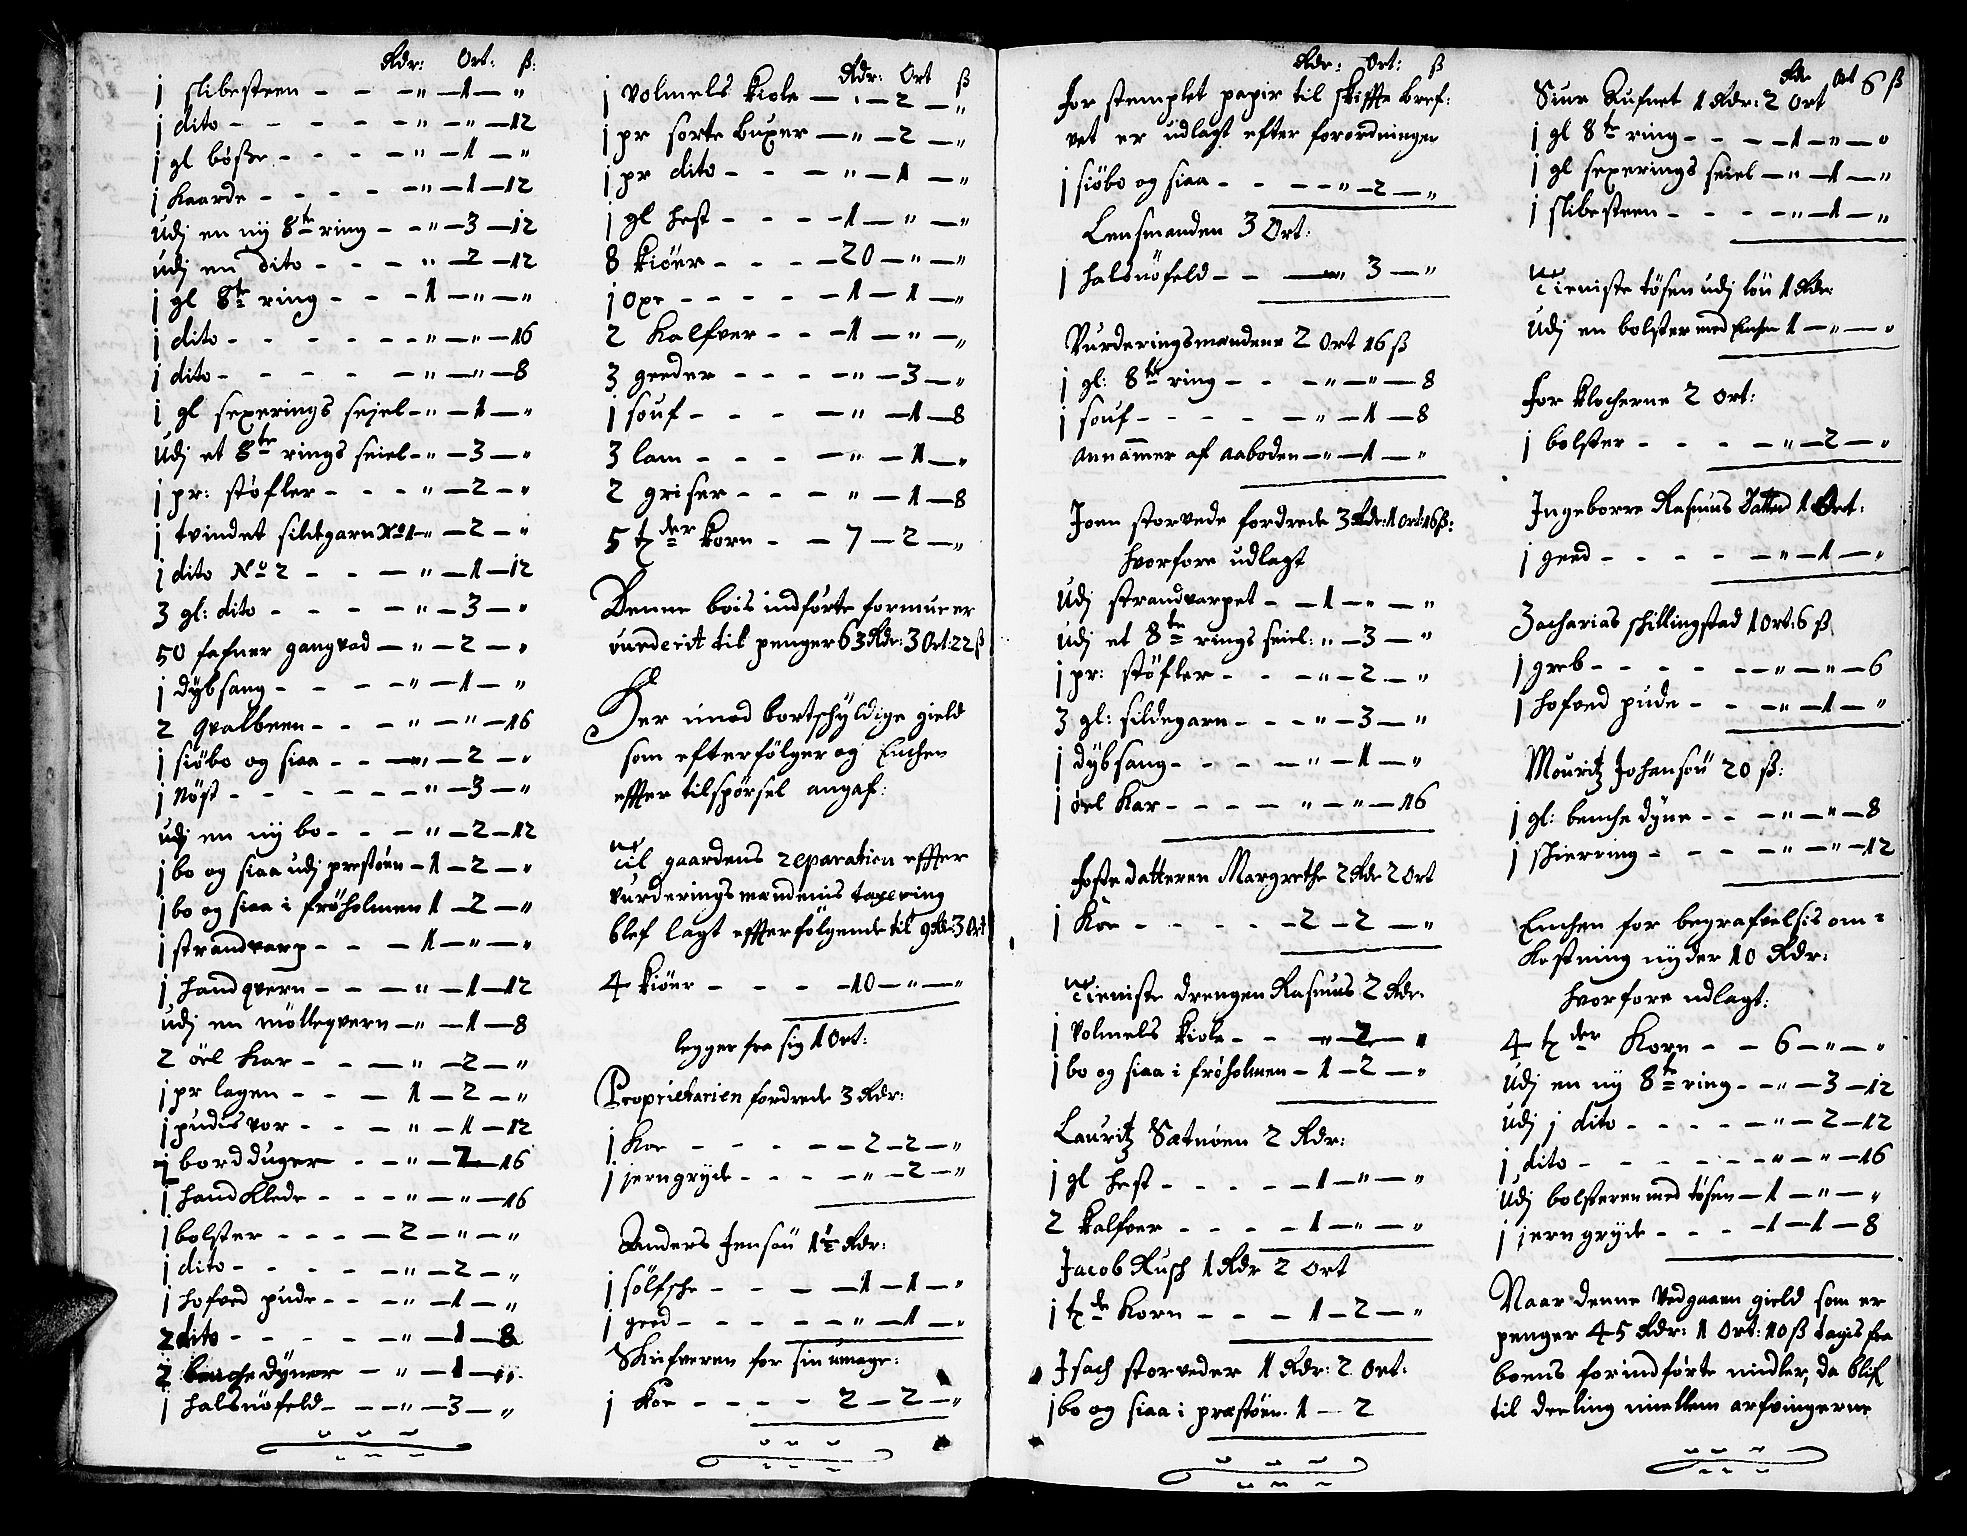 Rdr: Ort: ß:
1 slibesteen - - - " - 1 - "
1 dito - - - - - " - " - 12
1 gl bösse - - - - " - 1 - "
1 Kaarde - - - - " - 1 - 12
Udj en nÿ 8te ring - - " - 3 - 12
udj en dito - - - - " - 2 - 12
1 gl 8te ring - - - 1 - " - "
1 dito - - - - - - " - " - 16
1 dito - - - - - " - " - 8
1 gl sexerings sejel - " - 1 - "
Udj et 8te rings seiel - " - 3 - "
1 pr: støfler - - - " - 2 - "
1 tvindet sildegarn No 1 - " - 2 - "
1 dito No 2 - - - " - 1 - 12
3 gl: dito - - - - " - 3 - "
50 fafner gangvad - " - 2 - "
1 dÿbsang - - - - " - 1 - "
2 qvalbeen - - - " - " - 16
1 siöbo og siaa - - - " - 2 - "
1 Nöst - - - - - - " - 3 - "
udj en nÿ bo - - - " - 2 - 12
1 bo og siaa udj prestöen - 1 - 2 - "
1 bo og siaa i fröholmen 1 - 2 - "
1 strandvarp - - - 1 - " - "
1 handqvern - - - " - 1 - 12
udj en mölleqvern - " - 1 - 8
2 öel Kar - - - " - 2 - "
1 pr lagen - - - 1 - 2 - "
1 pudis vor - - - " - 1 - 12
1 bordduger - - " - 2 - 16
1 handklede - - - " - " - 16
1 bolster - - - - 2 - " - "
1 dito - - - - - " - 2 - "
1 hofved pude - - " - 1 - "
2 dito - - - - - " - 1 - 8
2 benche dÿner - " - 1 - "
1 halsnöfeld - - " - 3 - "
Rdr: Ort ß
1 volmels kiole - " - 2 - "
1 pr sorte buxer - " - 2 - "
1 pr dito - - - " - 1 - "
1 gl hest - - - - 1 - " - "
8 kiöer - - - - 20 - " - "
1 oxe - - - - - 1 - 1 - "
2 Kalfver - - - 1 - " - "
3 geeder - - - - " - 3 - "
1 souf - - - - " - 1 - 8
3 lam - - - - " - 1 - "
2 griser - - - " - 1 - 8
5 tder Korn - - 7 - 2 - "
Denne bois indførte formue er
vurderit til penger 63 Rdr: 3 Ort: 22 ß
Her imod bortschÿldige gield
som efterfölger og Enchen
effter tilspørsel angaf:
Til gaardens reparation effter
vurderings mændenis taxering
blef lagt effterfölgende til 9 Rdr 3 Ort
4 kiöer - - - - 10 - " - "
legger fra sig 1 Ort:
Proprietarien fordrede 3 Rdr:
1 Koe - - - - - 2 - 2 - "
1 jerngrÿde - - - - " - 2 - "
Anders Jensøn 1½ Rdr:
1 sölfsche - - - - 1 - 1 - "
1 geed - - - - - " - 1 - "
Skrifveren for sin umage:
1 Koe - - - - 2 - 2 - "
Rdr: Ort: ß
For stemplet papir til skiffte bref:
vet er udlagt efter forordningen
1 siöbo og siaa - - - " - 2 - "
Lensmanden 3 Ort:
1 halsnöfeld - - - " 3 - "
Vurderingsmændene 2 Ort 16 ß
1 gl: 8te ring - - - " - " - 8
1 souf - - - - - " - 1 - 8
annammer af aaboden - " - 1 - "
Joen storvede fordrede 3 Rdr: 1 Ort: 16 ß:
hvorfore udlagt
Udj strandvarpet - - 1 - " - "
Udj et 8te rings seiel: " - 3 - "
1 pr: støfler - - - " - 2 - "
3 gl: sildegarn - - - " - 3 - "
1 dÿbsang - - - - " - 1 - "
1 öel Kar - - - - " - " - 16
Foste datteren Margrethe 2 Rdr 2 Ort
1 Koe - - - - - 2 - 2 - "
Tieniste drengen Rasmus 2 Rdr:
1 volmels kiole - - " - 2 - "
1 bo og siaa i fröholmen - 1 - 2 - "
Lauritz Sætnöen 2 Rdr:
1 gl hest - - - - - 1 - " - "
2 kalfver - - - - 1 - " - "
Jacob Rusch 1 Rdr 2 Ort
1 tde Korn - - - 1 - 2 - "
Isach storveder 1 Rdr: 2 Ort:
1 bo og siaa i præstöen. 1 - 2
Rdr Ort ß
Siur Rufnet 1 Rdr: 2 Ort 6
1 gl 8te ring - - - - 1 - " - "
1 gl sexerings seiel - " - 1 - "
1 slibesteen - - - - " - 1 - "
Tieniste tösen udj lön 1 Rdr:
Udj en bolster med Enchen 1 - " - "
For klocherne 2 Ort:
1 bolster - - - - " - 2 - "
Ingeborre Rasmus Datter 1 Ort:
1 geed - - - - - " - 1 - "
Zacharias schillingstad 1 Ort: 6 ß
1 greb - - - - - " - " - 6
1 hofved pude - - - " - 1 - "
Mouritz Johansøn 20 ß:
1 gl: benche dÿne - - " - " - 8
1 schierring - - - - " - " - 12
Enchen for begrafvelsis om=
Kostning nÿder 10 Rdr:
hvorfore udlagt:
4 tder Korn - - 6 - " - "
Udj en nÿ 8te ring - - " - 3 - 12
Udj 1 dito - - - - - " - 2 - 12
1 dito - - - - - - " - " - 16
Udj bolsteren med tösen - 1 - " - "
1 jerngrÿde - - - - 1 - 1 - 8
Naar denne vedgaaen gield som er
penger 45 Rdr: 1 Ort: 10 ß tagis fra
boens forindførte midler, da blif
til deeling imellem arfvingerne